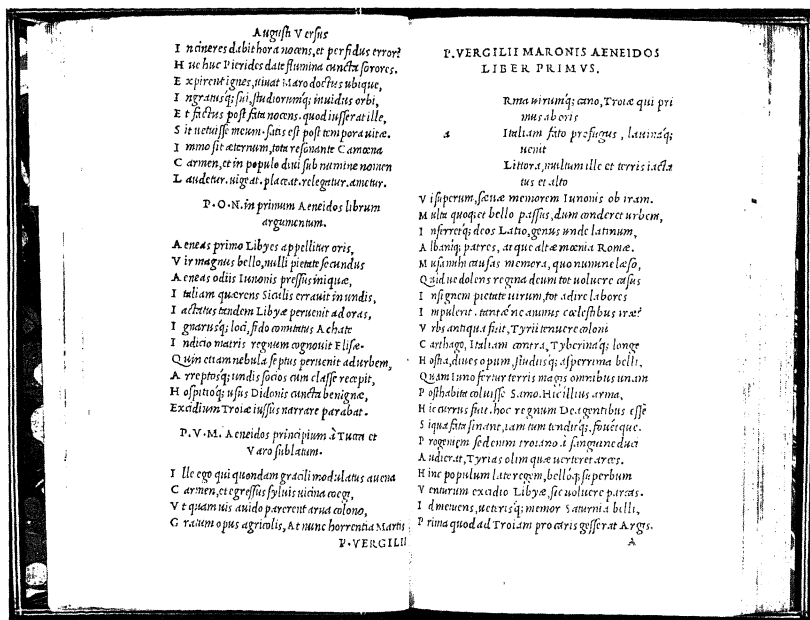 Augusti Versus
I n cineres dabit hora nocens, et perfidus error?
H uc huc Pierides date flumina cuncta sorores.
E xpirent ignes, uiuat Maro doctus ubique,
I ngratusq; sui, studiorumq; inuidus orbi,
E t factus post fata nocens. quod iusserat ille,
S it uetuisse meum. satis est post tempora uitæ.
I mmo sit æternum, tota resonante Camœna
C armen, et in populo diui sub numine nomen
L audetur. uigeat. placeat. relegatur. ametur.
P. O. N. in primum Aeneidos librum
argumentum.
A eneas primo Libyes appellitur oris,
V ir magnus bello, nulli pietate secundus
A eneas odiis Iunonis pressus iniquæ,
I taliam quærens Siculis errauit in undis,
I actatus tandem Libyæ peruenit ad oras,
I gnarusq; loci, fido comitatus Achate
I ndicio matris regnum cognouit Elisæ.
Quin etiam nebula septus peruenit ad urbem,
A rreptosq; undis socios cum classe recepit,
H ospitioq; usus Didonis cuncta benignæ,
Excidium Troiæ iussus narrare parabat.
P. V. M. Aeneidos principium à Tucca et
Varo sublatum.
I lle ego qui quondam gracili modulatus auena
C armen, et egressus syluis uicina coegi,
V t quamuis auido parerent arua colono,
G ratum opus agricolis, At nunc horrentia Martis
P. VERGILII
P. VERGILII MARONIS AENEIDOS
LIBER PRIMVS.
a
Rma uirumq; cano, Troiæ qui pri
mus ab oris
Italiam fato profugus, lauinaq;
uenit
Littora, multum ille et terris iacta
tus et alto
V i superum, sæuæ memorem Iunonis ob iram.
M ulta quoq; et bello passus, dum conderet urbem,
I nferretq; deos Latio, genus unde latinum,
A lbaniq; patres, atque altæ mœnia Romæ.
M usa mihi causas memora, quo numine læso,
Quid ue dolens regina deum tot uoluere casus
I nsignem pietate uirum, tot adire labores
I mpulerit. tantæ ne animis cœlestibus iræ?
V rbs antiqua fuit, Tyrii tenuere coloni
C arthago, Italiam contra, Tyberinaq; longe
H ostia, diues opum, studiisq; asperrima belli,
Quam Iuno fertur terris magis omnibus unam
P osthabita coluisse Samo. Hic illius arma,
H ic currus fuit. hoc regnum Dea gentibus esse
S i qua fata sinant, iam tum tenditq;, fouetque.
P rogeniem sed enim troiano à sanguine duci
A udierat, Tyrias olim quæ uerteret arces.
H inc populum late regem, belloq; superbum
V enturum excidio Libyæ, sic uoluere parcas.
I d metuens, ueterisq; memor Saturnia belli,
P rima quod ad Troiam pro caris gesserat Argis.
A